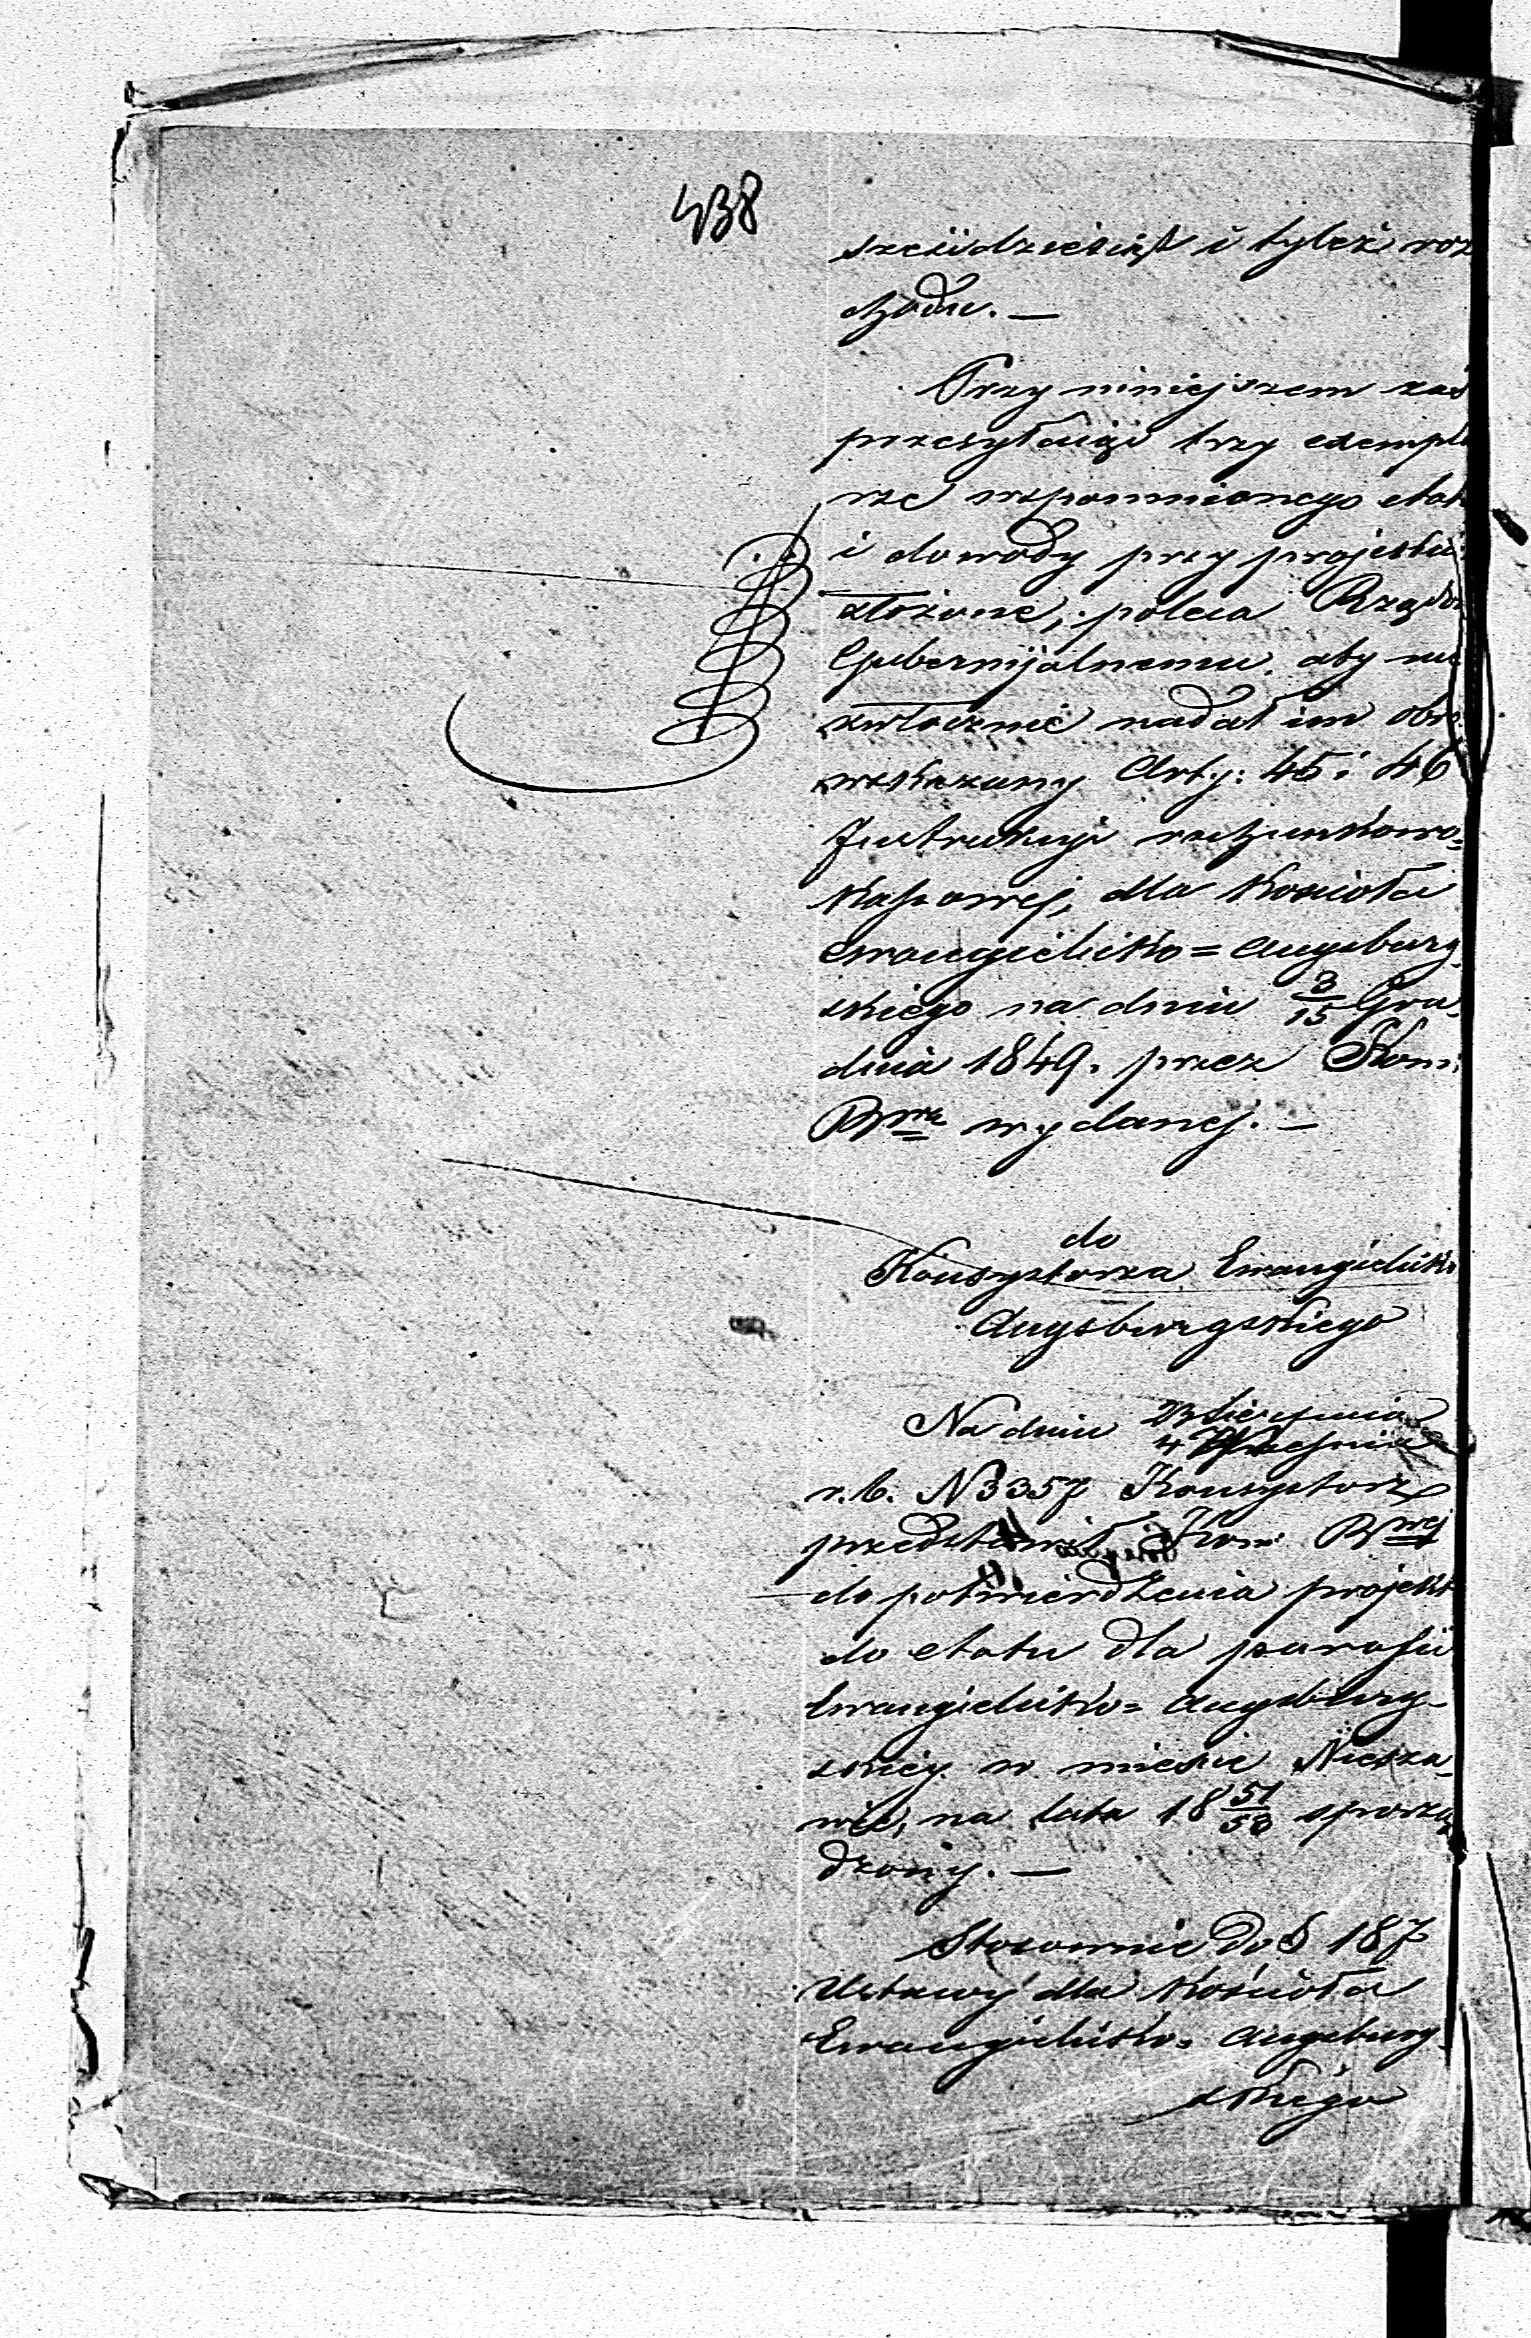 438
sześćdziesiąt i tyleż roz
chodu. —
Przy niniejszem zaś
przesyłając trzy exempla
rze wspomnionego etat
i dowody przy projekcie
złożone, poleca Rządo
Gubernijalnemu aby nie
zwłocznie nadał im obieg
wskazany Arty: 45 i 46
Instrukcyi rachunkowo=
Kassowej, dla Kościoła
Ewangielicko= Augsburg
skiego na dniu 3/15 Gru
dnia 1849. przez Kom:
Rwą wydanej. —
do
Konsystorza Ewangielicko
Augsburgskiego
Na dniu 23 Sierpnia / 4 Września
r. b. N 3357 Konsystorz
przedstawił Kom: Rwej
do potwierdzenia projekt
do etatu dla parafii
Ewangielicko= Augsburg-
skiej w mieście Niesza-
wie, na lata 18 51/53 sporzą
dzony. —
Stosownie do § 187
Ustawy dla Kościoła
Ewangielicko= Augsburg
skiego